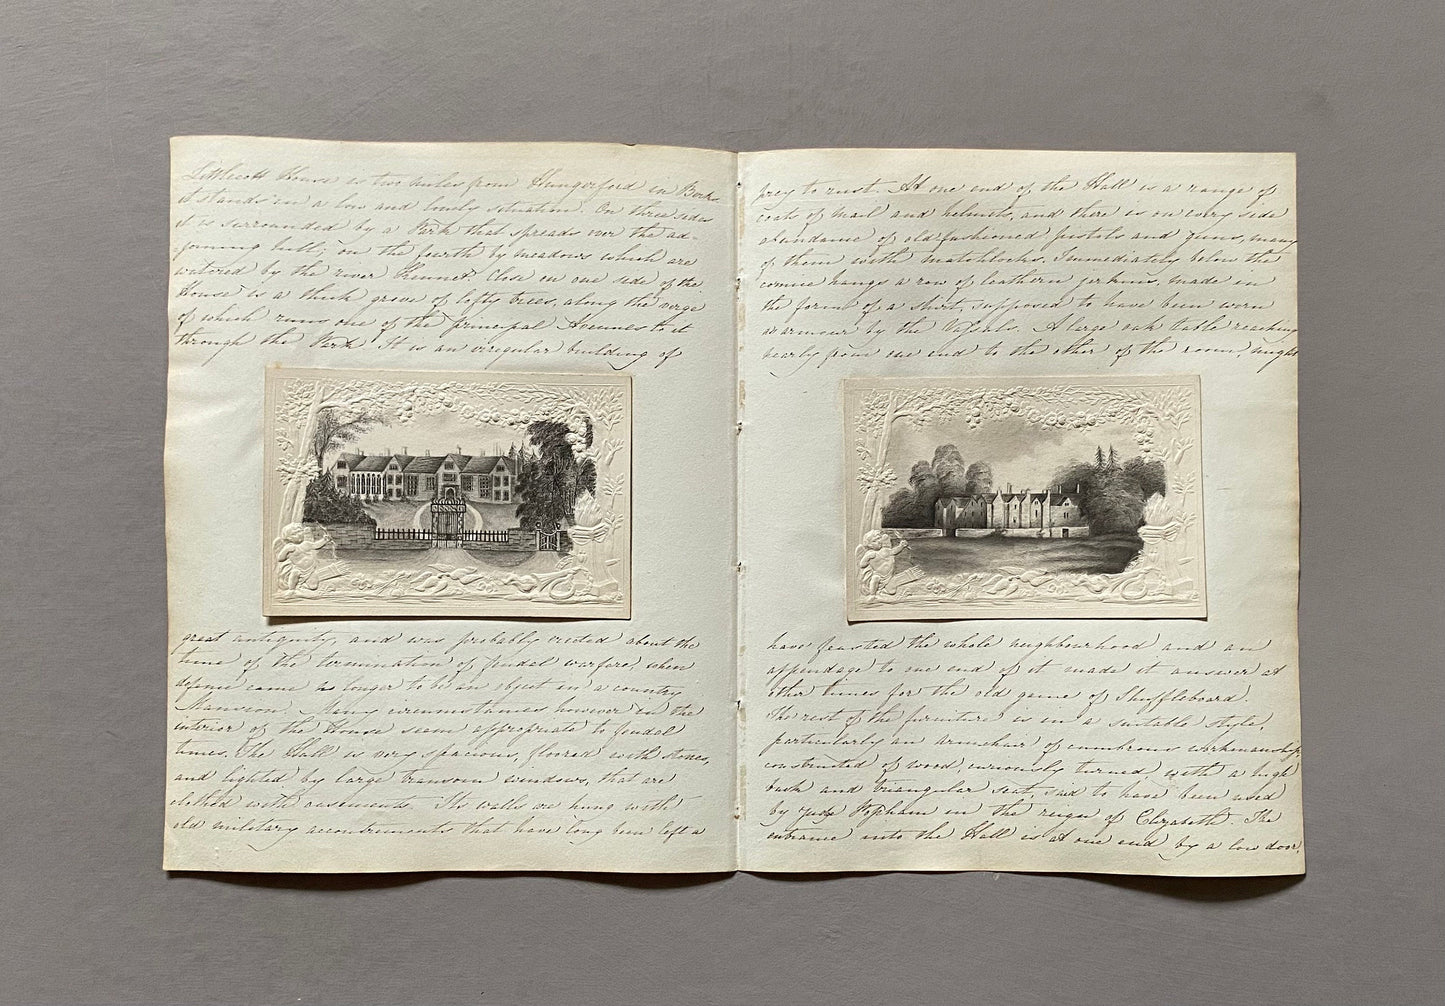 Littlecott House is two miles from Hungerford in Berks.
it stands in a low and lonely situation. On three sides
it is surrounded by a Park that spreads over the ad-
joining hill; on the fourth by meadows which are
watered by the river Kennet. Close on one side of the
House is a thick grove of lofty trees, along the verge
of which runs one of the principal Avenues to it
through the Park. It is an irregular building of
great antiquity, and was probably erected about the
time of the termination of feudal warfare, when
defence came no longer to be an object in a country
Mansion. Many circumstances however in the
interior of the House seem appropriate to feudal
times. The Hall is very spacious, floored with stones,
and lighted by large transom windows, that are
clothed with casements. Its walls are hung with
old military accoutrements that have long been left a
prey to rust. At one end of the Hall is a range of
coats of mail and helmets, and there is on every side
abundance of oldfashioned pistols and guns, many
of them with matchlocks. Immediately below the
cornice hangs a row of leathern jerkins, made in
the form of a shirt, supposed to have been worn
as armour by the Vassals. A large oak table reaching
nearly from one end to the other of the room, might
have feasted the whole neighbourhood and an
appendage to one end of it made it answer at
other times for the old game of Shuffleboard.
The rest of the furniture is in a suitable style,
particularly an armchair of cumbrous workmanship,
constructed of wood, curiously turned, with a high
back and triangular seat, said to have been used
by Judge Popham in the reign of Elizabeth. The
entrance into the Hall is at one end by a low door,